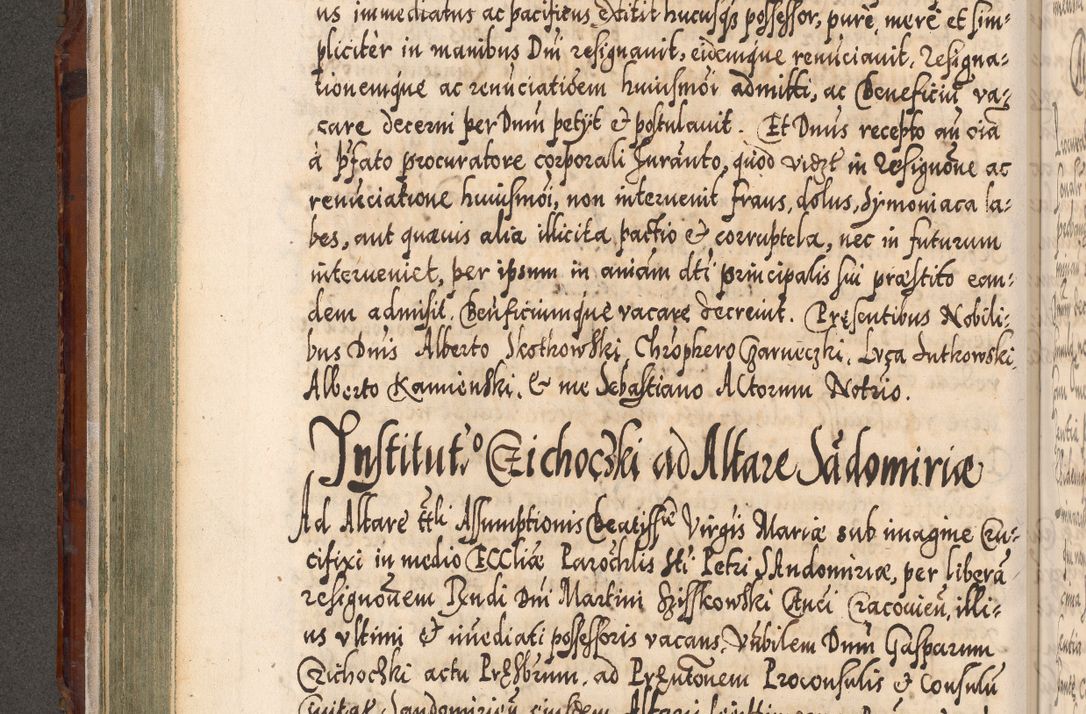 us immediatus ac pacificus extitit hucusq̃ possessor, purè, merè et sim-
pliciter in manibus Dni resignavit, eidemque renũciavit, Resigna-
tionemque ac renũciationem huiusmõi admitti, ac Beneficiũ va-
care decerni per Dnum petÿt & postulavit. Et Dnus recepto
à pfato procuratore corporali Iurãnto, quod vidzt in Resignõne ac
renũciatione huiusmõi, non intervenit fraus, dolus, symoniaca la-
bes, aut quævis alia illicita pactio & corruptela, nec in futurum
interveniet, per ipsum in aniãm dti principalis sui præstito ean-
dem admisit, Beneficiumque vacare decrevit. Pręsentibus Nobili-
bus Dnis Alberto Skotkowski, Chrõphero Czarneczki, Luca Sutkowski,
Alberto Kamienski, & me Sebastiano Actorum Notrio.
Institut.º Czichoczki ad Altare Sãdomiriæ
Ad Altare ttli Assumptionis Beatissæ Virgis Mariæ sub imagine Cru-
cifixi in medio Ecclia Parochlis Sti Petri Sandomiriæ, per liberã
resignõnem Rndi Dni Martini Szisskowski Cracovien, illi-
us ultimi & imediati possessoris vacans, Vnbilem Dnum Gasparum
Czichoczki actu Pręsbrum, ad Pręntõnem Proconsulis & Consulũ
Sandomirien eiusdem Altaris